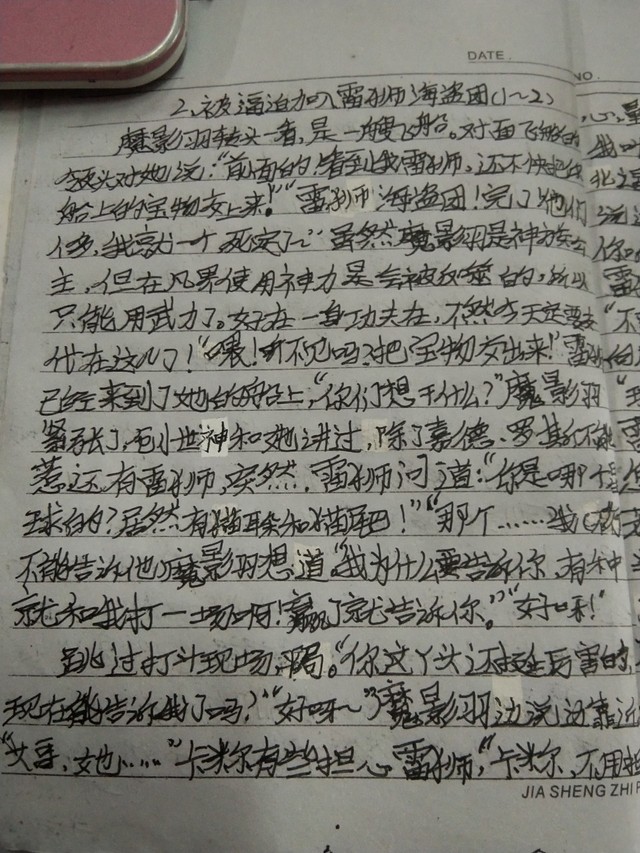 DATE
NO.
2、被逼迫加入雷狮海盗团(1~2)
魔影羽转头一看,是一艘飞船。对面飞船的
领头对她说:"前面的!看到我雷狮,还不快把
船上的宝物交上来!""雷狮海盗团!完了他们
人多,我就一个死定了~"虽然魔影羽是神族公
主,但在凡界使用神力是会被反噬的,所以
只能用武力了。好在一身功夫在,不然今天定要交
代在这儿了!"喂!听不见吗?把宝物交出来!"雷狮
已经来到了她的船上,"你们想干什么?"魔影羽
紧张了,因小世神和她讲过,除了嘉德罗斯不能
惹还有雷狮,突然,雷狮问道:"你是哪个星
球的?居然有猫耳和猫尾巴!""那个……我(
不能告诉他)"魔影羽想道"我为什么要告诉你,有种
就和我打一场啊!赢了就告诉你。""好呀!"
跳过打斗现场,"你这丫头还挺厉害的,
现在能告诉我了吗?""好呀~"魔影羽边说边靠近
"大哥,她……"卡米尔有些担心雷狮,"卡米尔,不用担
JIA SHENG ZHI